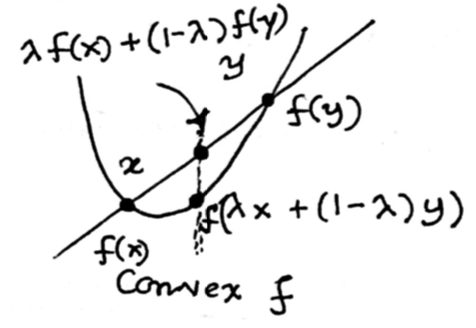 λf(x) + (1-λ)f(y)
y
f(y)
x
f(λx + (1-λ)y)
f(x)
Convex f